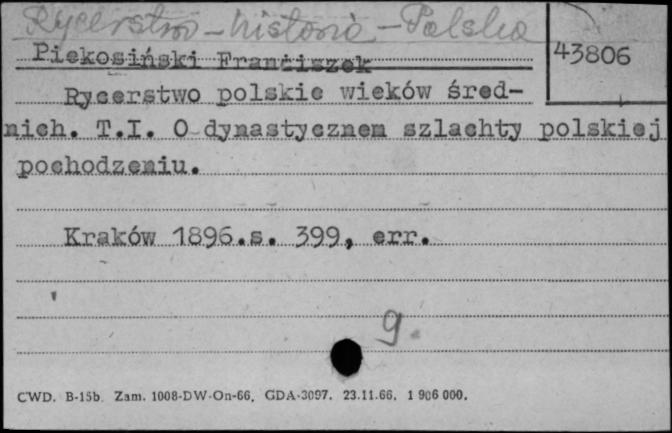 Rycerstwo - historia - Polska
Piekosiński Franciszek
43806
Rycerstwo polskie wieków śred-
nich. T.I. O dynastycznem szlachty polskiej
pochodzeniu.
Kraków 1896.s. 399, err.
9.
CWD. B-15b. Zam. 1008-DW-On-66. GDA-3097. 23.11.66. 1 906 000.